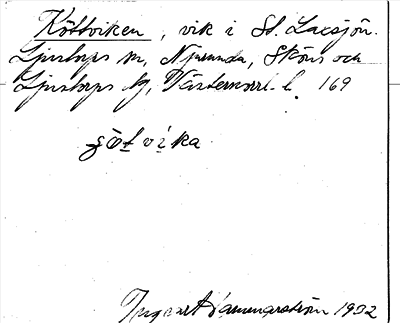 Köttviken, vik i St. Laxsjön.
Ljustorps sn, Njurunda, Sköns och
Ljustorps tg, Västernorrl. l. 169
šötvika
Ingeart Hammarström 1932